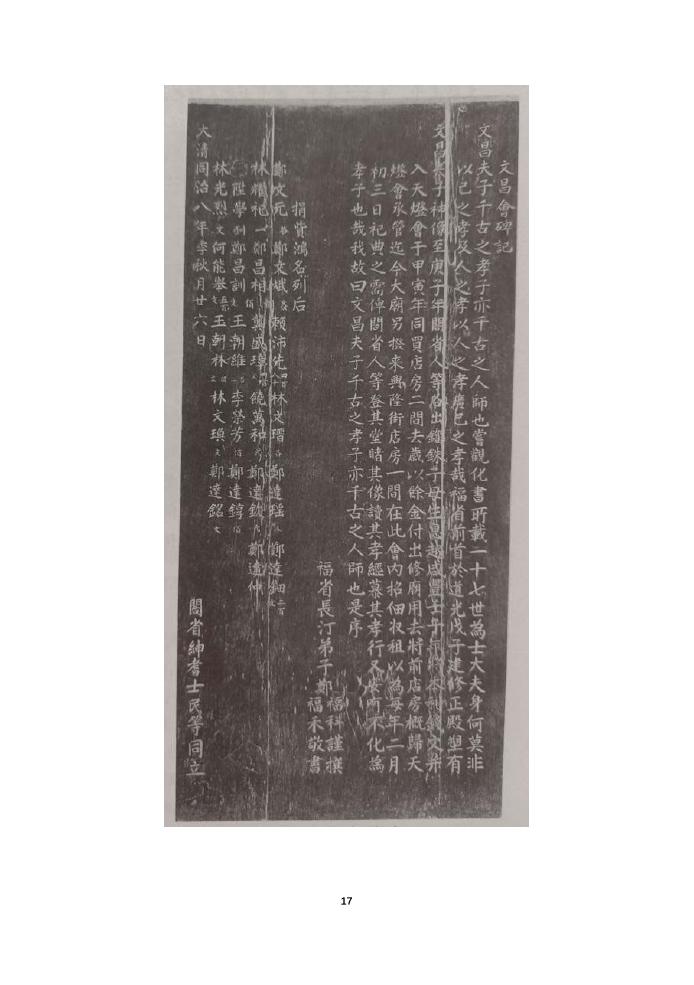 文昌會碑記
文昌夫子千古之孝子亦千古之人師也嘗觀化書所載一十七世為士大夫身何莫非
以己之孝及人之孝以人之孝廣己之孝哉福省前首於道光戊子建修正殿塑有
文昌夫子神像至庚子年闔省人等
入天燈會于甲寅年同買店房二間去歲以餘金付出修廟用去將前店房概歸天
燈會承管迄今大廟另撥來興隆街店房一間在此會內招佃收租以為每年二月
初三日祀典之需俾闔省人等登其堂睹其像讀其孝經慕其孝行又安所不化為
孝子也哉我故曰文昌夫子千古之孝子亦千古之人師也是序
福省長汀弟子鄭福科謹撰
福禾敬書
捐貲鴻名列后
鄭文斌 賴沛 林文瑨 鄭達瑤 鄭達鈿
鄭昌相 龔盛璋 饒萬和 鄭達欽 鄭達仲
陞學 鄭昌訓 王朝維 李榮芳 鄭達錞
林光烈 何能舉 王朝林 林文瑱 鄭達銘
大清同治八年季秋月廿六日
闔省紳耆士民等同立
17